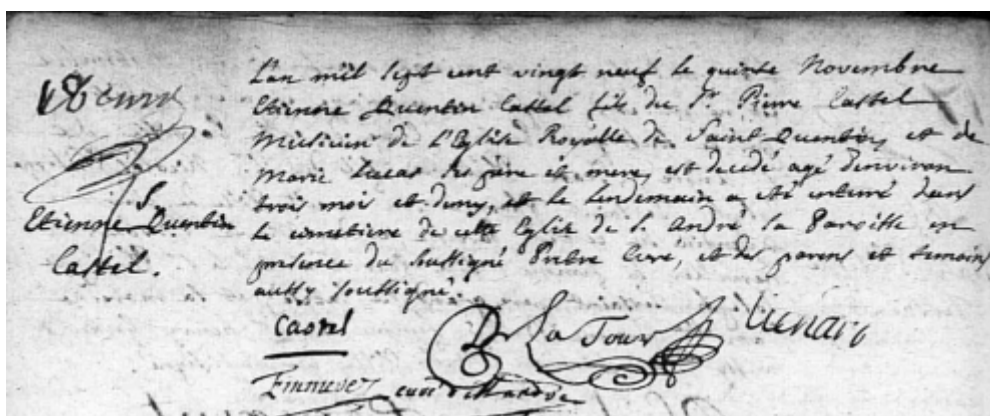 Etienne Quentin
Castel.
L'an mil sept cent vingt neuf le quinze Novembre
Etienne Quentin Castel fils du Sr. Pierre Castel
Musicien de L'Eglise Royalle de Saint Quentin, et de
Marie Lucas ses père et mere, est decedé agé denviron
trois mois et demy, et le lendemain a eté inhumé dans
le cimetiere de cette Eglise de S. André sa Paroisse en
presence du soussigné Prêtre Curé, et des parens et temoins
aussy soussigné.
Castel
La Tour
curé de St André